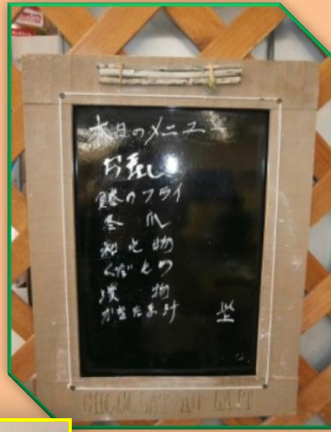 本日のメニュー
お赤飯
鮭のフライ
冬瓜
和え物
くだもの
漬物
かきたま汁
以上
CHOCOLAT AU LAIT